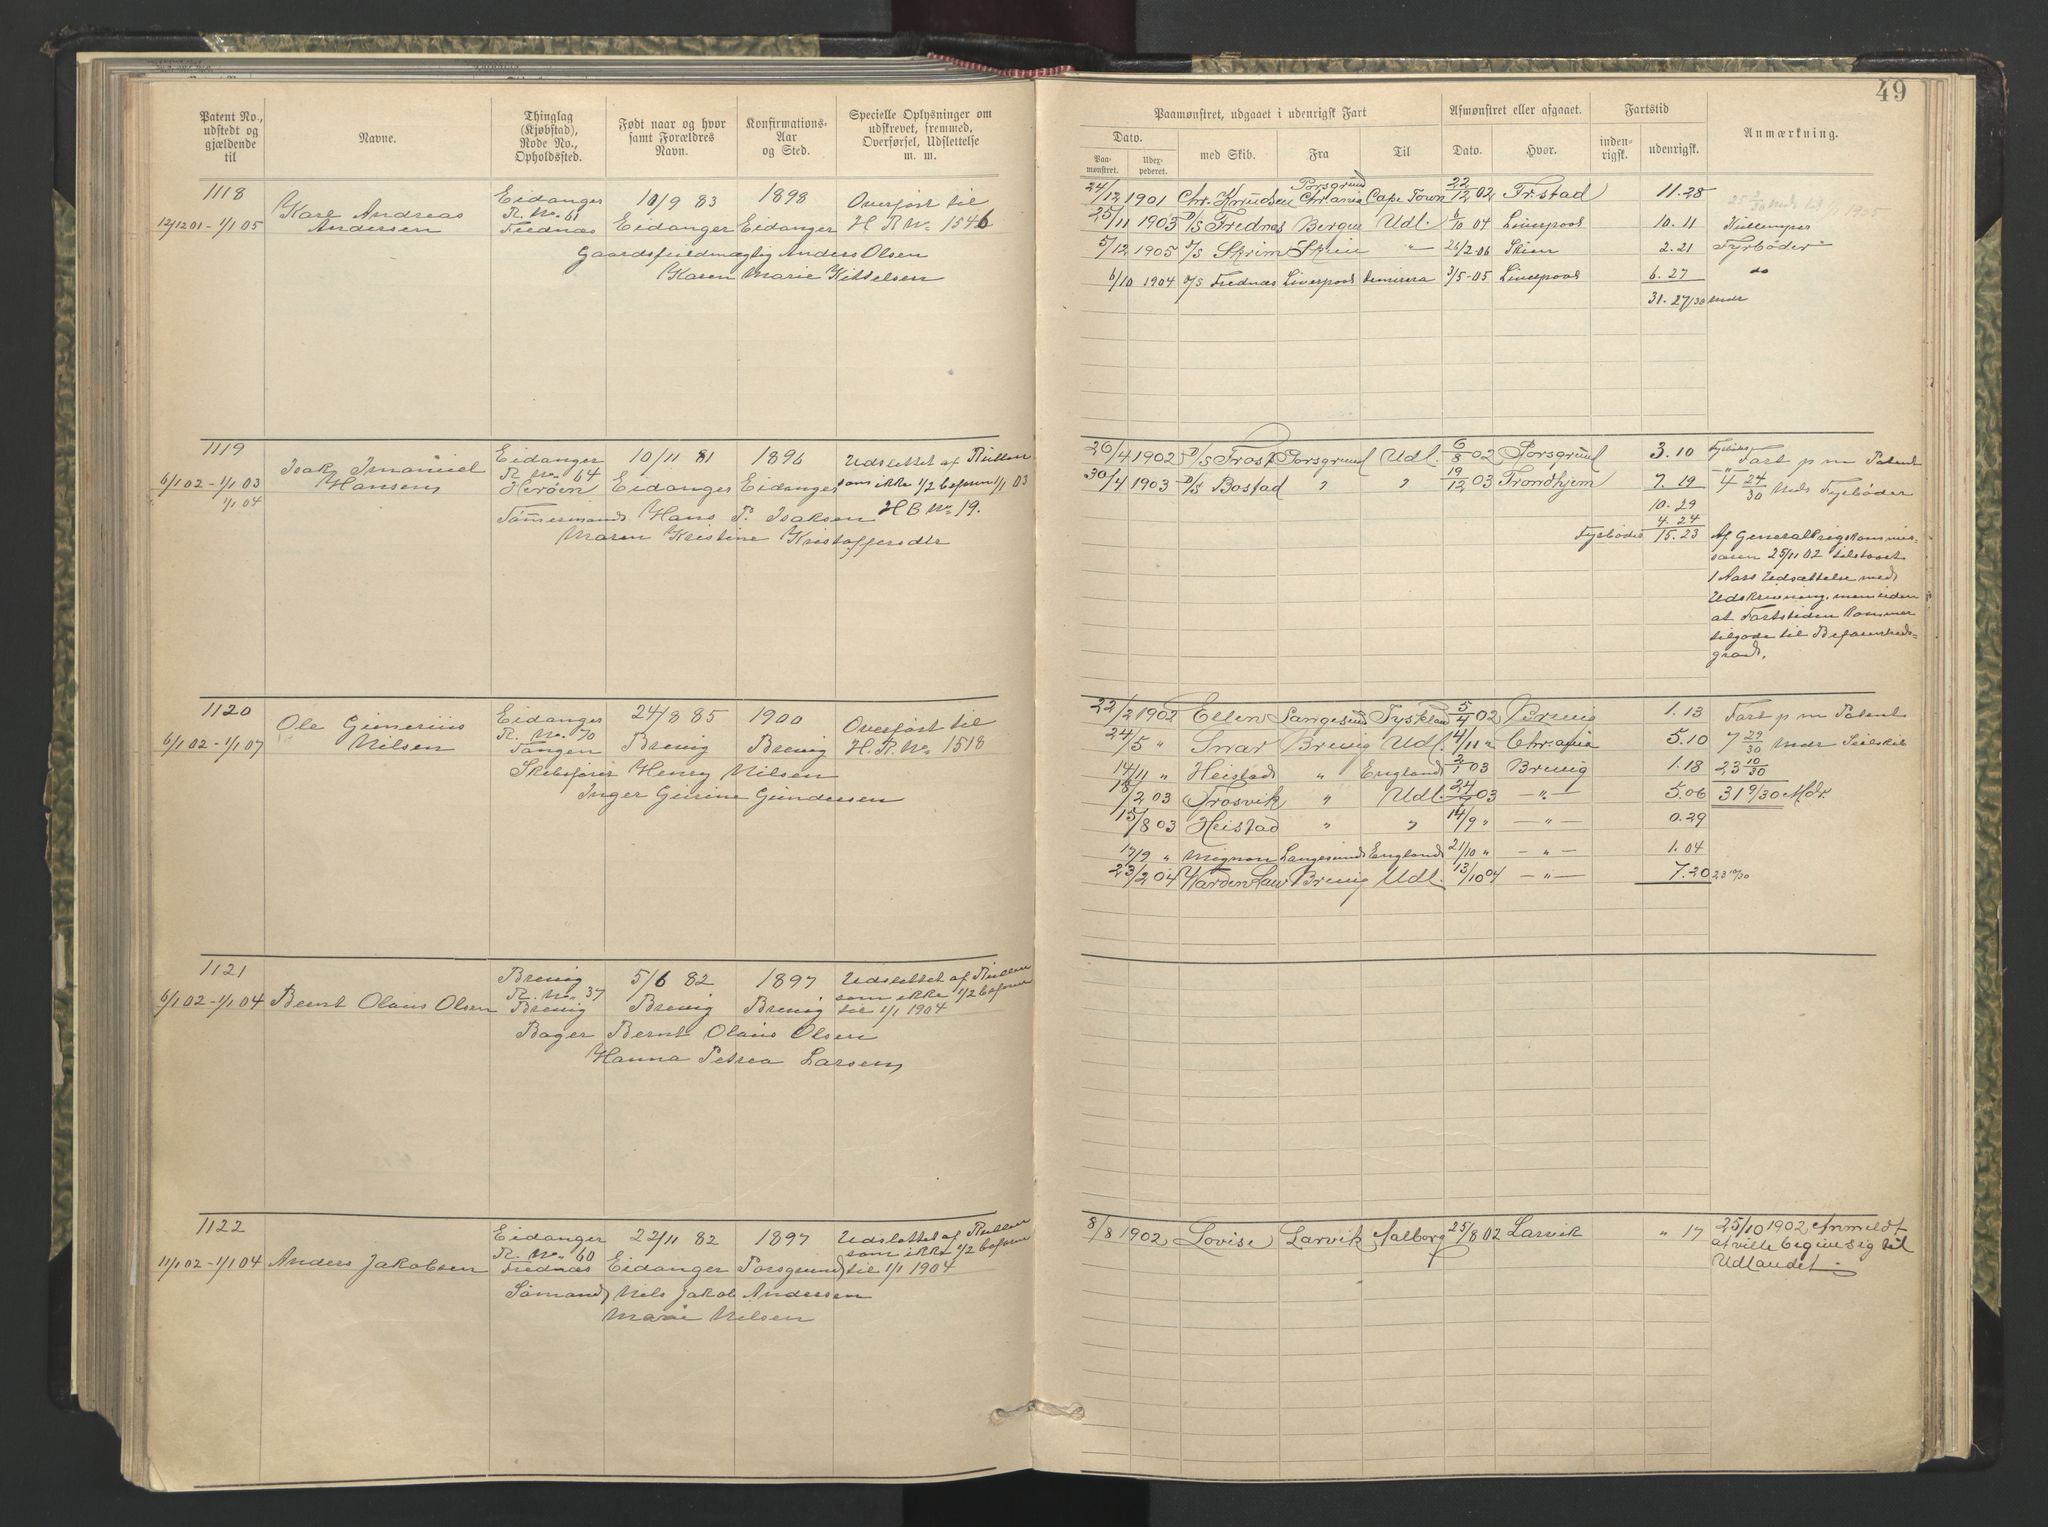 49
Patent No., udstedt og gjældende til
Navne.
Thinglag (Kjøbstad), Rode No., Opholdssted.
Født naar og hvor samt Forældres Navn.
Konfirmations-Aar og Sted.
Specielle Oplysninger om udskrevet, fremmed, Overførsel, Udslettelse m. m.
Paamønstret, udgaaet i udenrigsk Fart
Afmønstret eller afgaaet.
Fartstid
Anmærkning.
Dato.
Paa-mønstret.
Udex-pederet.
med Skib.
Fra
Til
Dato.
Hvor.
inden-rigsk.
udenrigsk.
1118
12/12 01 - 1/1 05
Karl Andreas
Andersen
Eidanger
R. No. 61
Frednæs
10/9 83
Eidanger
1898
Eidanger
Overført til
H R No 1546
Gaardsfuldmægtig Anders Olsen
Karen Marie Kittelsen
24/12 1901 Chr. Knudsen Porsgrund Chr.ania Cape Town 22/12 02 Fr.stad 11.28
25/11 1903 D/S Frednæs Bergen Udl. 6/10 04 Liverpool 10.11 Kullemper
5/12 1905 D/S Skrim Skien " 26/2-06 Skien 2.21 Fyrbøder
6/10 1904 D/S Frednæs Liverpool 3/5-05 Liverpool 6.27 do
31.27/30 Mdr
1119
6/1 02 - 1/1 03
1/1 04
Isak Imanuel
Hansen
Eidanger
R. No. 64
Herøen
10/11 81
Eidanger
1896
Eidanger
Udslettet af Rullen
som ikke 1/2 befaren 1/1 03
H B No 19.
Tømmermand Hans P. Isaksen
Maren Kristine Kristoffersdtr
26/4 1902 D/S Frost Porsgrund Udl. 6/8 02 Porsgrund 3.10
30/4 1903 D/S Bostad " " 19/12 03 Trondhjem 7.19
10.29
4.24
Fyrbøder 15.23
Fart p m Patent
4 24/30 Mds Fyrbøder
Af Generalkrigskommis-
saren 25/11 02 tilstaaet
1 Aars Udsættelse med
Udskrivning, men uden
at Fartstiden kommer
tilgode til Befarenheds-
grad.
1120
6/1 02 - 1/1 07
Ole Gunerius
Nilsen
Eidanger
R. No. 70
Tangen
24/8 85
Brevig
1900
Brevig
Overført til
H. R. No 1518
Skibsfører Henry Nilsen
Inger Gurine Gundersen
22/2 1902 Ellen Langesund Tyskland 5/4 02 Brevig 1.13 Fart p m Patent
24/5 " Snar Brevig Udl. 4/11 " Chr.ania 5.10 7 29/30 Mdr Seilskib
14/11 " Heistad " England 2/1 03 Brevig 1.18 23 10/30
18/2 03 Frosvik " Udl. 24/7 03 - " - 5.06 31 9/30 Mdr.
15/8 03 Heistad " " 14/9 " - " - 0.29
17/9 " Mignon Langesund England 21/10 " - " - 1.04
23/2 04 Brevig Udl. 13/10 04 - " - 7.20 23 10/30
1121
6/1 02 - 1/1 04
Bernt Olaus Olsen
Brevig
R. No. 37
Brevig
5/6 82
Brevig
1897
Brevig
Udslettet af Rullen
som ikke 1/2 befaren
til 1/1 1904
Bager Bernt Olaus Olsen
Hanna Petrea Larsen
1122
11/1 02 - 1/1 04
Anders Jakobsen
Eidanger
R. No. 60
Frednæs
22/11 82
Eidanger
1897
Porsgrund
Udslettet af Rullen
som ikke 1/2 befaren
til 1/1 1904
Sømand Nils Jakob Andersen
Marie Nilsen
8/8 1902 Lovise Larvik Aalborg 25/8 02 Larvik " 17
25/10 1902 Anmeldt
at ville begive sig til
Udlandet.